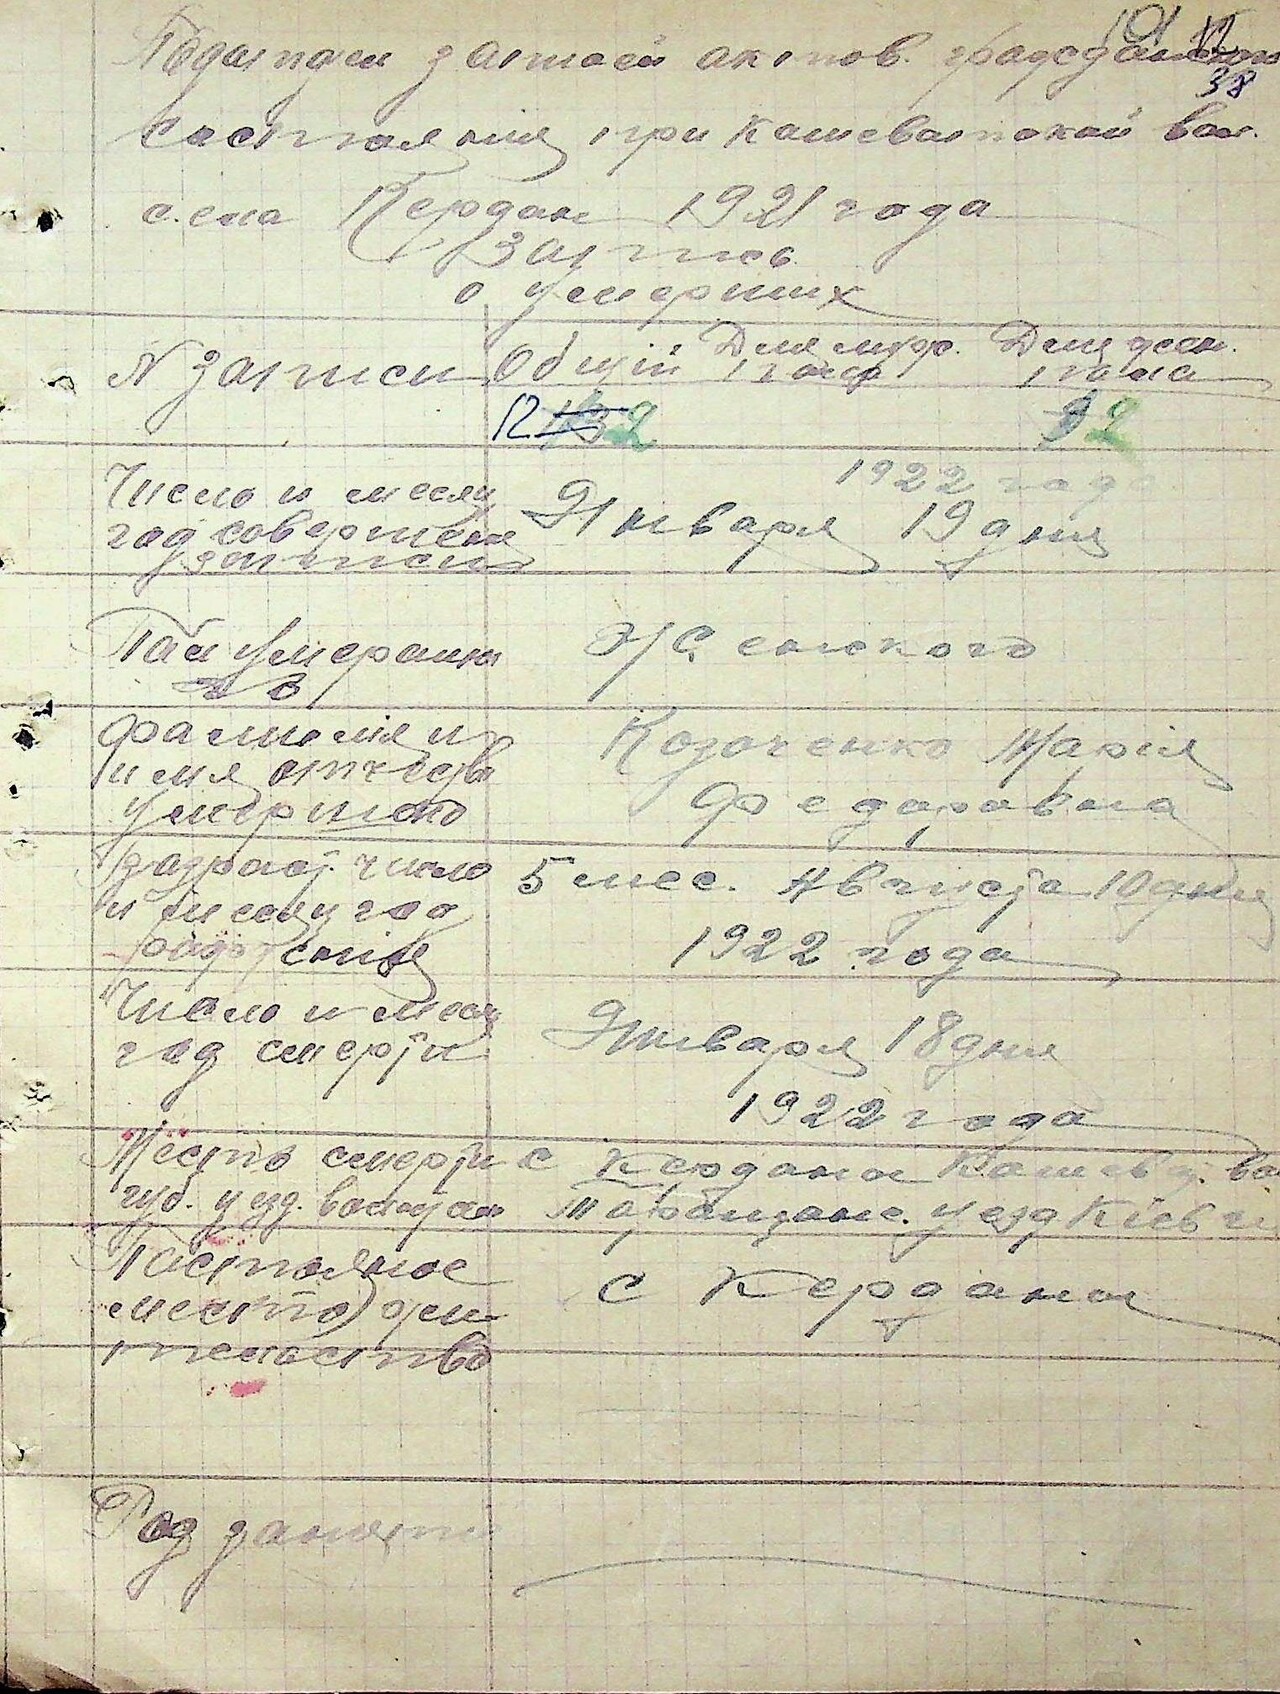 101
38
Податдел записей актов гражданского
состояния при Кашеватской вол.
села Кердан 1921 года
Запись
о умерших
N записи Общій Для муж. пола Для жен. пола
12 2 2
Число и месяц
год совершен
записи
1922 года
Января 19 дня
Пол умерш
Женского
Фамилия и
имя отчеств
умершого
Козаченко Марія
Федаровна
Вазраст число
и месяц год
рождения
5 мес. Августа 10 дня
1922 года
Число и месяц
год смерти
Января 18 дня
1922 года
Место смерти
губ. уезд. волость
с Кердана Кашев во
Таращанс. уезд Кіев г
Пастоянное
место жи
тельство
с Кердана
Род заняти